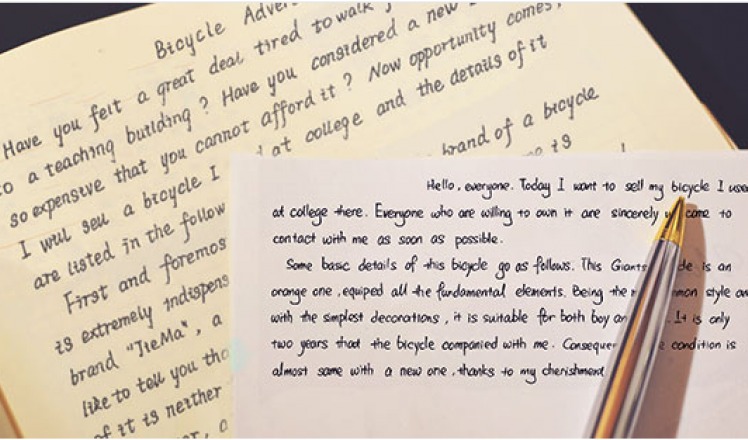 Bicycle
Have you felt a great deal tired to walk
to a teaching building? Have you considered a new
so expensive that you cannot afford it? Now opportunity comes,
I will sell a bicycle I at college and the details of it
are listed in the follow brand of a bicycle
First and foremos is
is extremely indispens
brand "JieMa", a
like to tell you tha
of it is neither
Hello, everyone. Today I want to sell my bicycle I use
at college there. Everyone who are willing to own it are sincerely to
contact with me as soon as possible.
Some basic details of this bicycle go as follows. This Giant is an
orange one, equiped all the fundamental elements. Being the style an
with the simplest decorations, it is suitable for both boy an It is only
two years that the bicycle companied with me. Consequen condition is
almost same with a new one, thanks to my cherishment